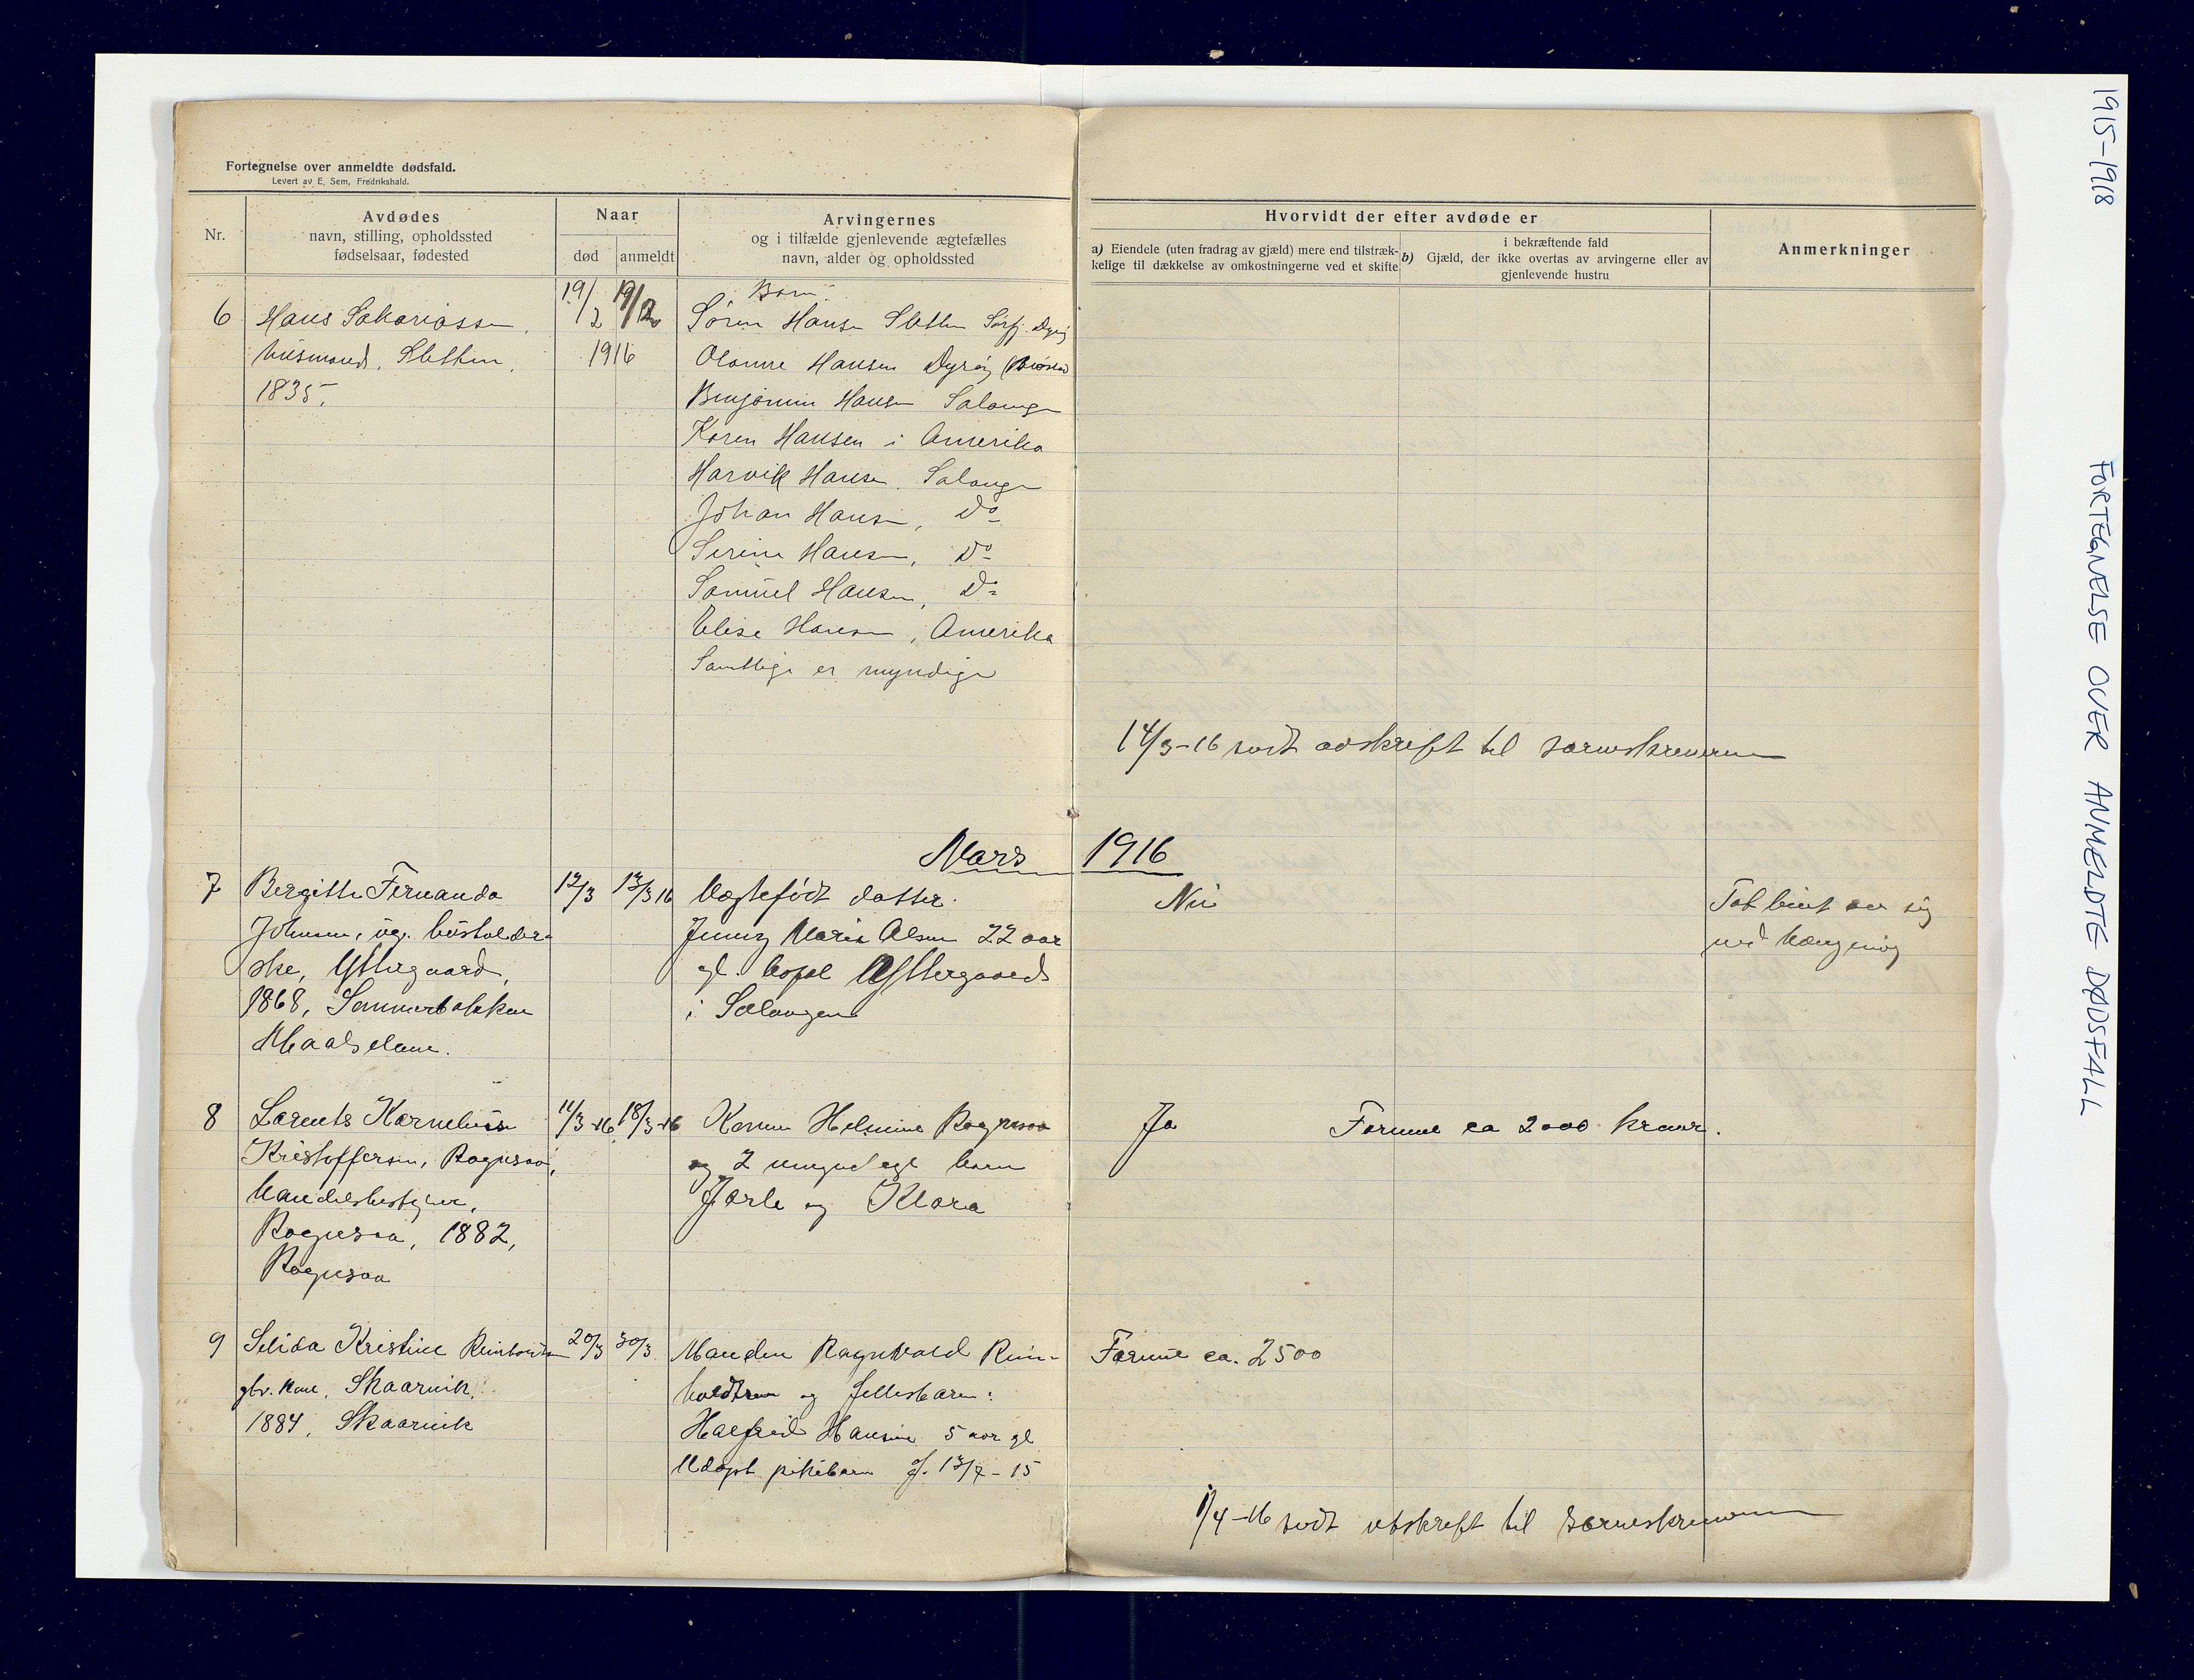 Fortegnelse over anmeldte dødsfald.
Levert av E. Sem, Fredrikshald.
Nr.
Avdødes
navn, stilling, opholdssted
fødselsaar, fødested
Naar
død
anmeldt
Arvingernes
og i tilfælde gjenlevende ægtefælles
navn, alder og opholdssted
Hvorvidt der efter avdøde er
a) Eiendele (uten fradrag av gjæld) mere end tilstræk-
kelige til dækkelse av omkostningerne ved et skifte
i bekræftende fald
b) Gjæld, der ikke overtas av arvingerne eller av
gjenlevende hustru
Anmerkninger
6
Hans Sakariassen,
husmand, Sletten,
1835,
19/2 19/2
1916
Børn:
Søren Hansen Sletten Sørfj. Dyrøy
Olanne Hansen Dyrøy
Benjamin Hansen Salangen
Karen Hansen i Amerika
Harvik Hansen, Salangen
Johan Hansen, Do
Serine Hansen, Do
Samuel Hansen, Do
Elise Hansen, Amerika
Samtlige er myndige
14/3-16 sendt avskrift til sorenskriveren
Mars 1916
7
Bergitte Fernanda
Johnsen, ug. husholder-
ske, Yttergaard,
1868, Sommerbakken
Maalselven.
12/3
13/3 16
Uægtefødt datter.
Jenny Marie Olsen 22 aar
gl. bopæl Yttergaard
i Salangen
Nei
Tok livet av sig
ved hængning
8
Larents Kornelius
Kristoffersen, Ragnsaa,
handelsbestyrer,
Rognsaa, 1882,
Rognsaa
11/3-16
18/3-16
Konen Helmine Rognsaa
og 2 umyndige barn
Jarle og Klara
Ja
Formue ca 2000 kroner.
9
Selida Kristine Reinholdtsen
gbr. kone, Skaarvik,
1884, Skaarvik
20/3
30/3
Manden Ragnvald Rein-
holdtsen og fellesbarn:
Halfrid Hansine 5 aar gl
Udøpt pikebarn f. 13/7-15
Formue ca. 2500
1/4-16 sendt utskrift til sorenskriveren
1915-1918
FORTEGNELSE OVER ANMELDTE DØDSFALL